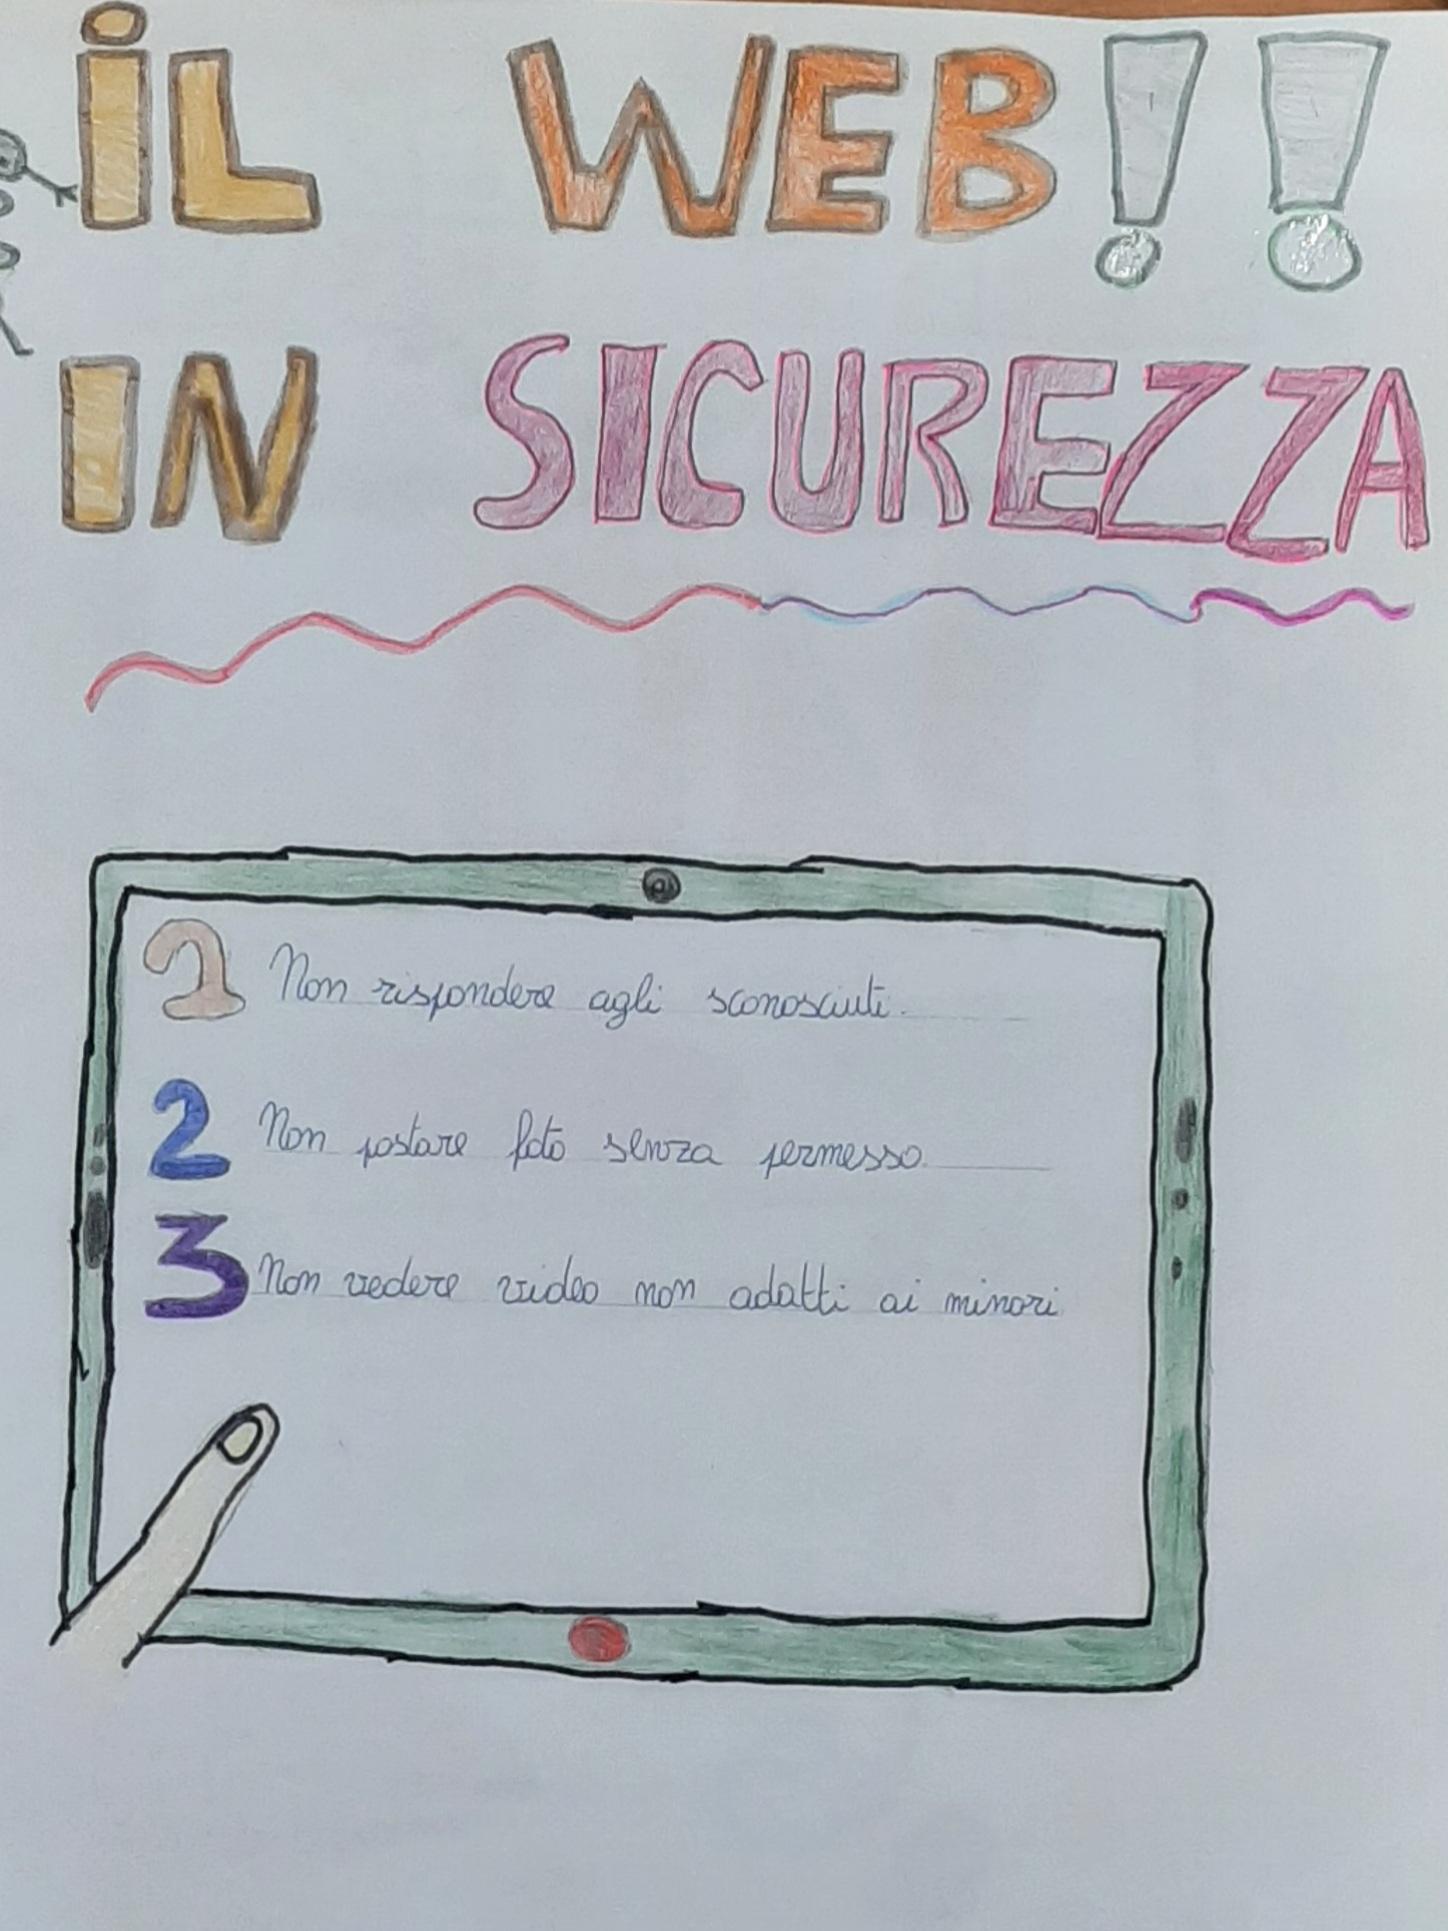 IL WEB!!
IN SICUREZZA
1 Non rispondere agli sconosciuti.
2 Non postare foto senza permesso.
3 Non vedere video non adatti ai minori